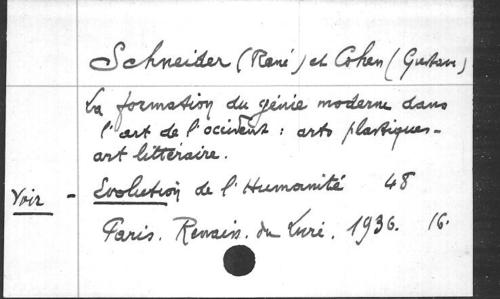 Schneider (René) et Cohen (Gustave)
La formation du génie moderne dans
l'art de l'occident : arts plastiques -
art littéraire.
Voir - Evolution de l'Humanité 48
Paris. Renais. du Livre. 1936. 16.